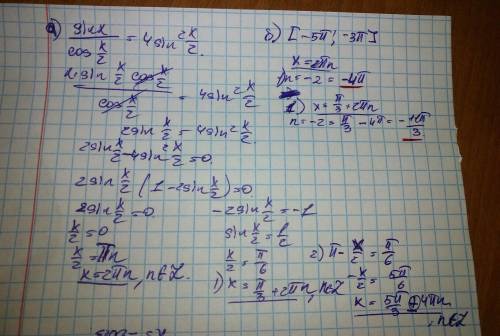 а) sin x / cos x/2 = 4sin² x/2
2·sin x/2 cos x/2 / cos x/2 = 4sin² x/2
2sin x/2 = 4sin² x/2
2sin x/2 - 4sin² x/2 = 0
2sin x/2 (1 - 2sin x/2) = 0
2sin x/2 = 0
x/2 = 0
x/2 = πn
x = 2πn, n∈Z.
-2sin x/2 = -1
sin x/2 = 1/2
x/2 = π/6
1) x = π/3 + 2πn, n∈Z
2) π - x/2 = π/6
-x/2 = 5π/6
x = 5π/3 + 4πn, n∈Z
б) [-5π; -3π]
x = 2πn
1) n = -2 = -4π
2) x = π/3 + 2πn
n = -2 = π/3 - 4π = -11π/3